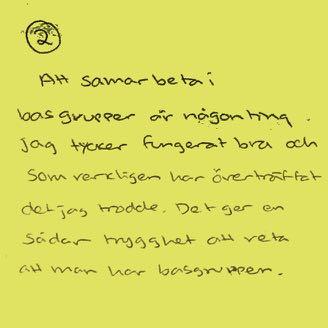 2
Att samarbeta i
basgrupper är någonting.
Jag tycker fungerat bra och
som verkligen har överträffat
det jag trodde. Det ger en
sådan trygghet att veta
att man har basgruppen.